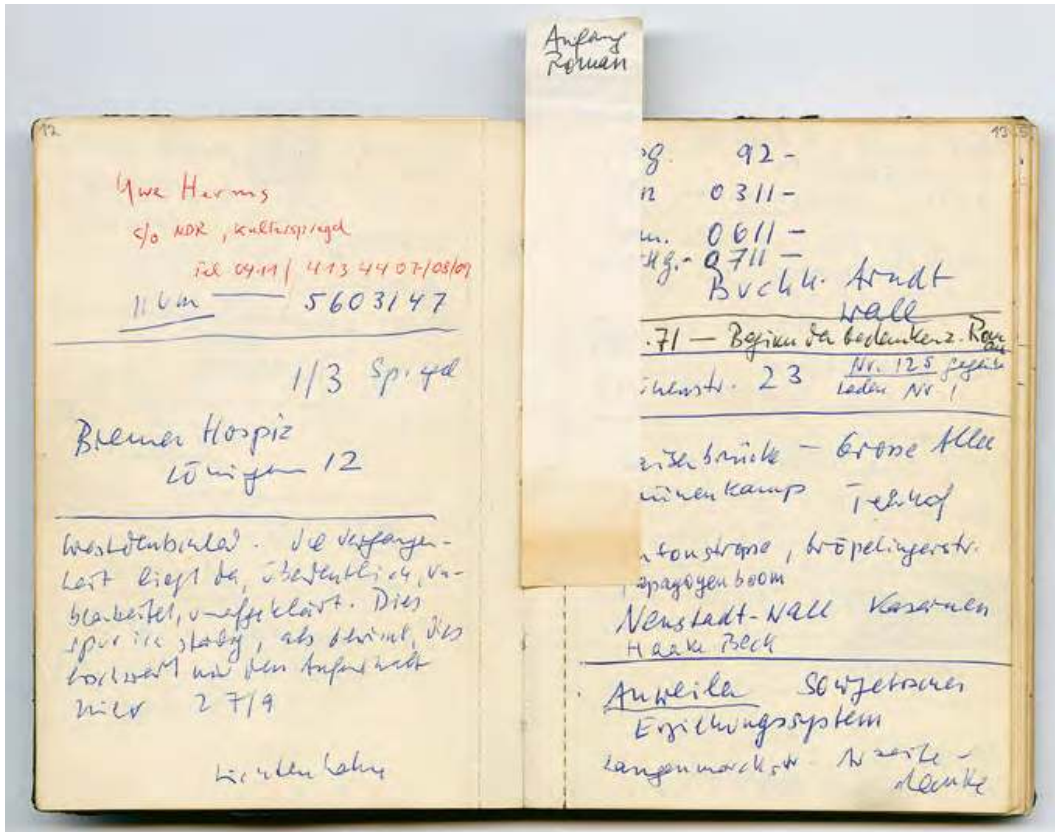 12
Uwe Herms
c/o NDR, Kulturspiegel
Tel 0411/ 413 44 07/08/09
5603147
1/3 Spiegel
Bremer Hospiz
Löningerst 12
Westdeutschland. Die Vergangen-
heit liegt da, unordentlich, un-
bearbeitet, unaufgeklärt. Dies
spür ich ständig, als
mir den Aufenthalt
hier 27/9
Lichtenhahn
Anfang
Roman
13
g. 92-
n 0311-
m. 0611-
0711-
Buchh. Arndt
Wall
.71 — Beginn der Gedanken z. Roman
chenstr. 23 Nr. 125 gegenüber
Laden Nr 1
brücke — Grosse Allee
kamp Teerhof
ntonstrasse, Gröpelingerstr.
Neustadt-Wall Kasernen
Haake Beck
Anweiler Sowjetisches
Erziehungssystem
Langemarckstr.